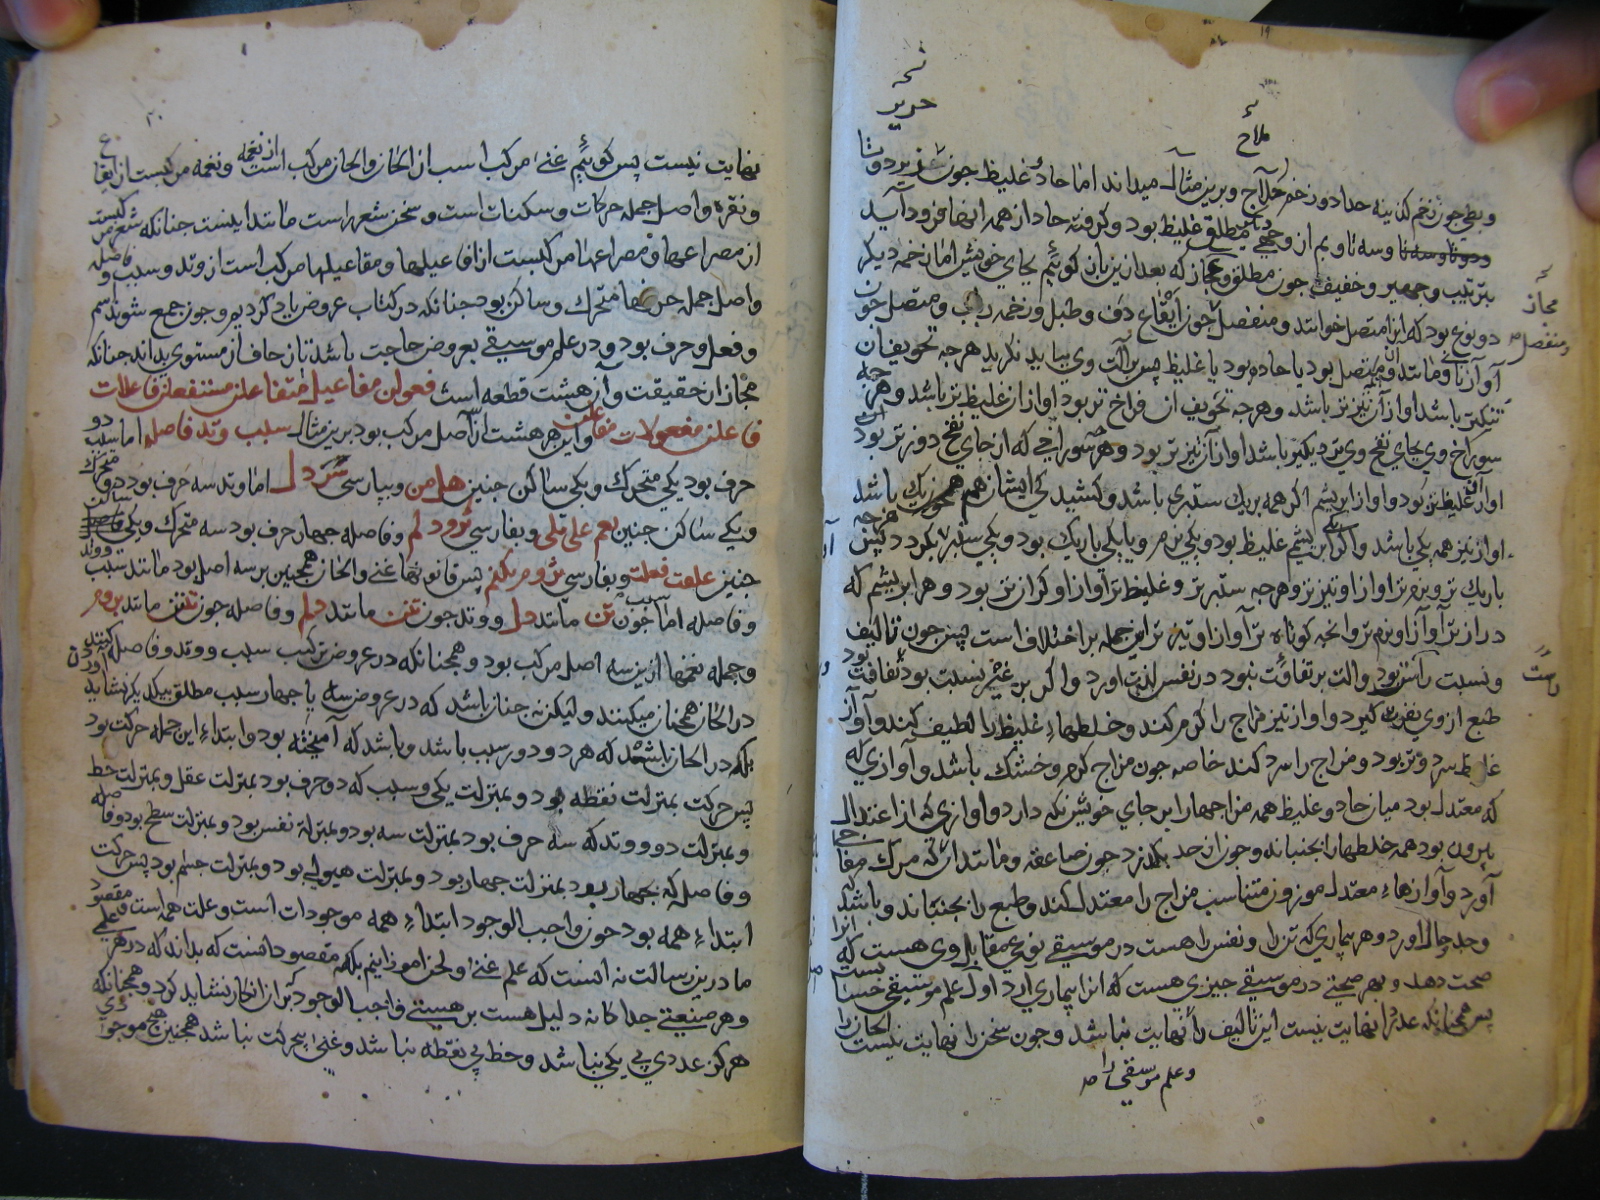 حریر
ملاح
مجاز
و منفصل
راست
دوتا و سه تا و بم از وی مطلق غلیظ بود و گرفته حاد از همه اینها فرود آید
بترتیب و جهیر و خفیف چون مطلق و مجاز که بعد ازین بازگوئیم بجای خویش اما زخمه دیگر
دو نوع بود که این متصل خوانند و منفصل چون ایقاع دف و طبل و زخمه رباب و متصل چون
آواز نای و مانند آن و متصل بود یا حاده بود یا غلیظ پس برآلت وی بباید نگرید هرچه تجویف آن
تنکتر باشد آواز آن تیزتر باشد و هرچه تجویف آن فراخ تر بود آواز آن غلیظ تر باشد و هرچه
سوراخ وی بجای نفخ وی نزدیکتر باشد آواز آن تیزتر بود و هر سوراخی که از جای نفخ دورتر بود
آواز آن غلیظ تر بود و آواز ابریشم اگر همه بریک ستبری باشد و کشیدگی ایشان هم همچون یک باشد
آواز نیز همه یکی باشد و اگر ابریشم یکی غلیظ بود و یکی نرم و یا یکی باریک بود و یکی ستبر بگردد پس هرچه
باریک تر و نرم تر آواز او تیزتر و هرچه ستبرتر و غلیظ تر آواز او گران تر بود و هر ابریشم که
درازتر آواز او نرم تر و آنچه کوتاه تر آواز او تیزتر این جمله بر اختلاف است پس چون تألیف
و نسبت راست بود و آلت بر تفاوت نبود در نفس لذت آورد و اگر بر غیر نسبت بود تفاوت بود
طبع از وی نفرت گیرد و آواز تیز مزاج را گرم کند و خلطهاء غلیظ را لطیف کند و آواز
غلیظ سرد و تر بود و مزاج را سرد کند خاصه چون مزاج گرم و خشک باشد و آوازی که
که معتدل بود میان حاد و غلیظ همه مزاجها را بر جای خویش نگه دارد و آوازی که از اعتدال
بیرون بود همه خلطها را بجنباند و چون از حد بگذرد چون صاعقه و مانند آن که مرگ مفاجی
آورد و آوازهاء معتدل موزون متناسب مزاج را معتدل کند و طبع را بجنباند و باشد که
وجد و حال آورد و هر بیماری که تن را و نفس را هست در موسیقی نوعی مقابل وی هست که آنرا
صحت دهد و بهر صحتی در موسیقی چیزی هست که آنرا بیماری آرد
پس همچنانکه عدد را نهایت نیست این تألیف را نهایت نباشد و چون سخن را نهایت نیست الحان را
و علم موسیقی را
نهایت نیست پس گوئیم غنی مرکب است از الحان و الحان مرکب است از نغمه و نغمه مرکبست از ایقاع
و نقره و اصل جمله حرکات و سکنات است و سخن شعر راست مانند اینست چنانکه شعر مرکبست
از مصراعها و مصراعها مرکبست از افاعیلها و مفاعیلها مرکب است از وتد و سبب و فاصله
و اصل جمله حرفها متحرک و ساکن بود چنانکه در کتاب عروض یاد کردیم و چون جمع شوند اسم
و فعل و حرف بود و در علم موسیقی بعروض حاجت باشد تا زحاف از مستوی بداند چنانکه
مجاز از حقیقت و آن هشت قطعه است فعولن مفاعیلن متفاعلن مستفعلن فاعلات
فاعلن مفعولات مفاعلتن و این هر هشت از سه اصل مرکب بود برین مثال سبب وتد فاصله اما سبب دو
حرف بود یکی متحرک و یکی ساکن چنین هل من و بپارسی سر دل اما وتد سه حرف بود دو متحرک
و یکی ساکن چنین نعم علی قلی و بفارسی برو دلم و فاصله چهار حرف بود سه متحرک و یکی ساکن
چنین علمت فعلت و بفارسی بروم بکنم پس قانونهاء غنی و الحان همچنین بر سه اصل بود مانند سبب و وتد
و فاصله اما سبب چون تن مانند دل و وتد چون تنن مانند دلم و فاصله چون تننن مانند بروم
و جمله نغمها ازین سه اصل مرکب بود و همچنانکه در عروض ترکیب سبب و وتد و فاصله کنند
در الحان همچنان میکنند ولیکن نه چنان باشد که در عروض سه یا چهار سبب مطلق بیکدیگر نشاید آوردن
بلکه در الحان باشد که هر دو دور سبب باشد و باشد که آمیخته بود و ابتداء این جمله حرکت بود
پس حرکت بمنزلت نقطه بود و بمنزلت یکی و سبب که دو حرف بود بمنزلت عقل و بمنزلت خط
و بمنزلت دو و وتد که سه حرف بود بمنزلت سه بود و بمنزله نفس بود و بمنزلت سطح بود و فاصله
و فاصله که چهار بود بمنزلت چهار بود و بمنزلت هیولی بود و بمنزلت جسم بود پس حرکت
ابتداء همه بود چون واجب الوجود ابتداء همه موجودات است و علت همه است و مقصود
ما درین رسالت نه آنست که علم غنی و لحن آموزانیم بلکه مقصود آنست که بداند که در هر علمی
و هر صنعتی جداگانه دلیل هست بر هستی واجب الوجود که بر آن انکار نشاید کرد و همچنانکه
هرگز عددی بی یکی نباشد و خط بی نقطه نباشد و غنی بی حرکت نباشد همچنین هیچ موجودی